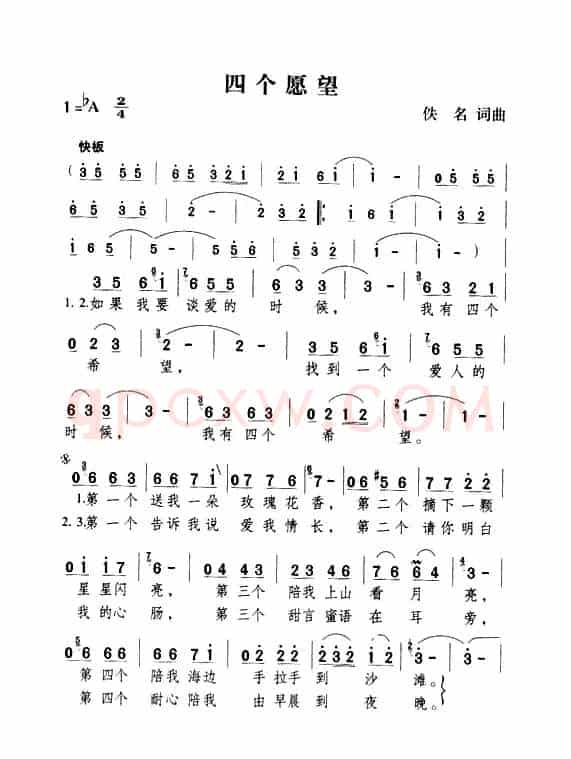 四个愿望
1=♭A 2/4
佚 名 词曲
快板
(3 5 5 | 5 5 5 | 6 5 3 2 1 | 2 1 6 | 1 - | 0 5 5 5 |
6 5 5 | 2 - | 2 - | 2 3 2 |: 1 6 | 1 | 3 2 |
1 6 5 | 5 - | 5 - | 5 5 6 | 1 - | 1 - )
3 5 6 1 | 6 5 5 | 6 3 3 | 3 - | 6 3 2 1 |
1. 2.如果 我要 谈爱的 时 候, 我有四个
0 2 3 | 2 - | 2 - | 3 5 6 1 | 6 5 5 |
希 望, 找到一个 爱人的
qpcxw.COM
6 3 3 | 3 - | 6 3 3 | 0 2 1 2 | 1 - | 1 - |
时 候, 我有四个 希 望。
0 6 6 3 | 6 6 7 1 | 0 7 6 7 | 0 6 5 6 | 7 7 2 2 |
1.第一个 送我一朵 玫瑰花香, 第二个 摘下一颗
2. 3.第一个 告诉我说 爱我情长, 第二个 请你明白
0 1 1 7 | 6 - | 0 4 4 3 | 2 3 4 6 | 7 6 4 | 3 - |
星星闪 亮, 第三个 陪我上山 看月 亮,
我的心 肠, 第三个 甜言蜜语 在耳 旁,
0 6 6 6 | 6 6 7 1 | 0 2 2 2 | 2 3 2 | 1 2 | 3 - | 3 - |
第四个 陪我海边 手拉手到 沙 滩。
第四个 耐心陪我 由早晨到 夜 晚。